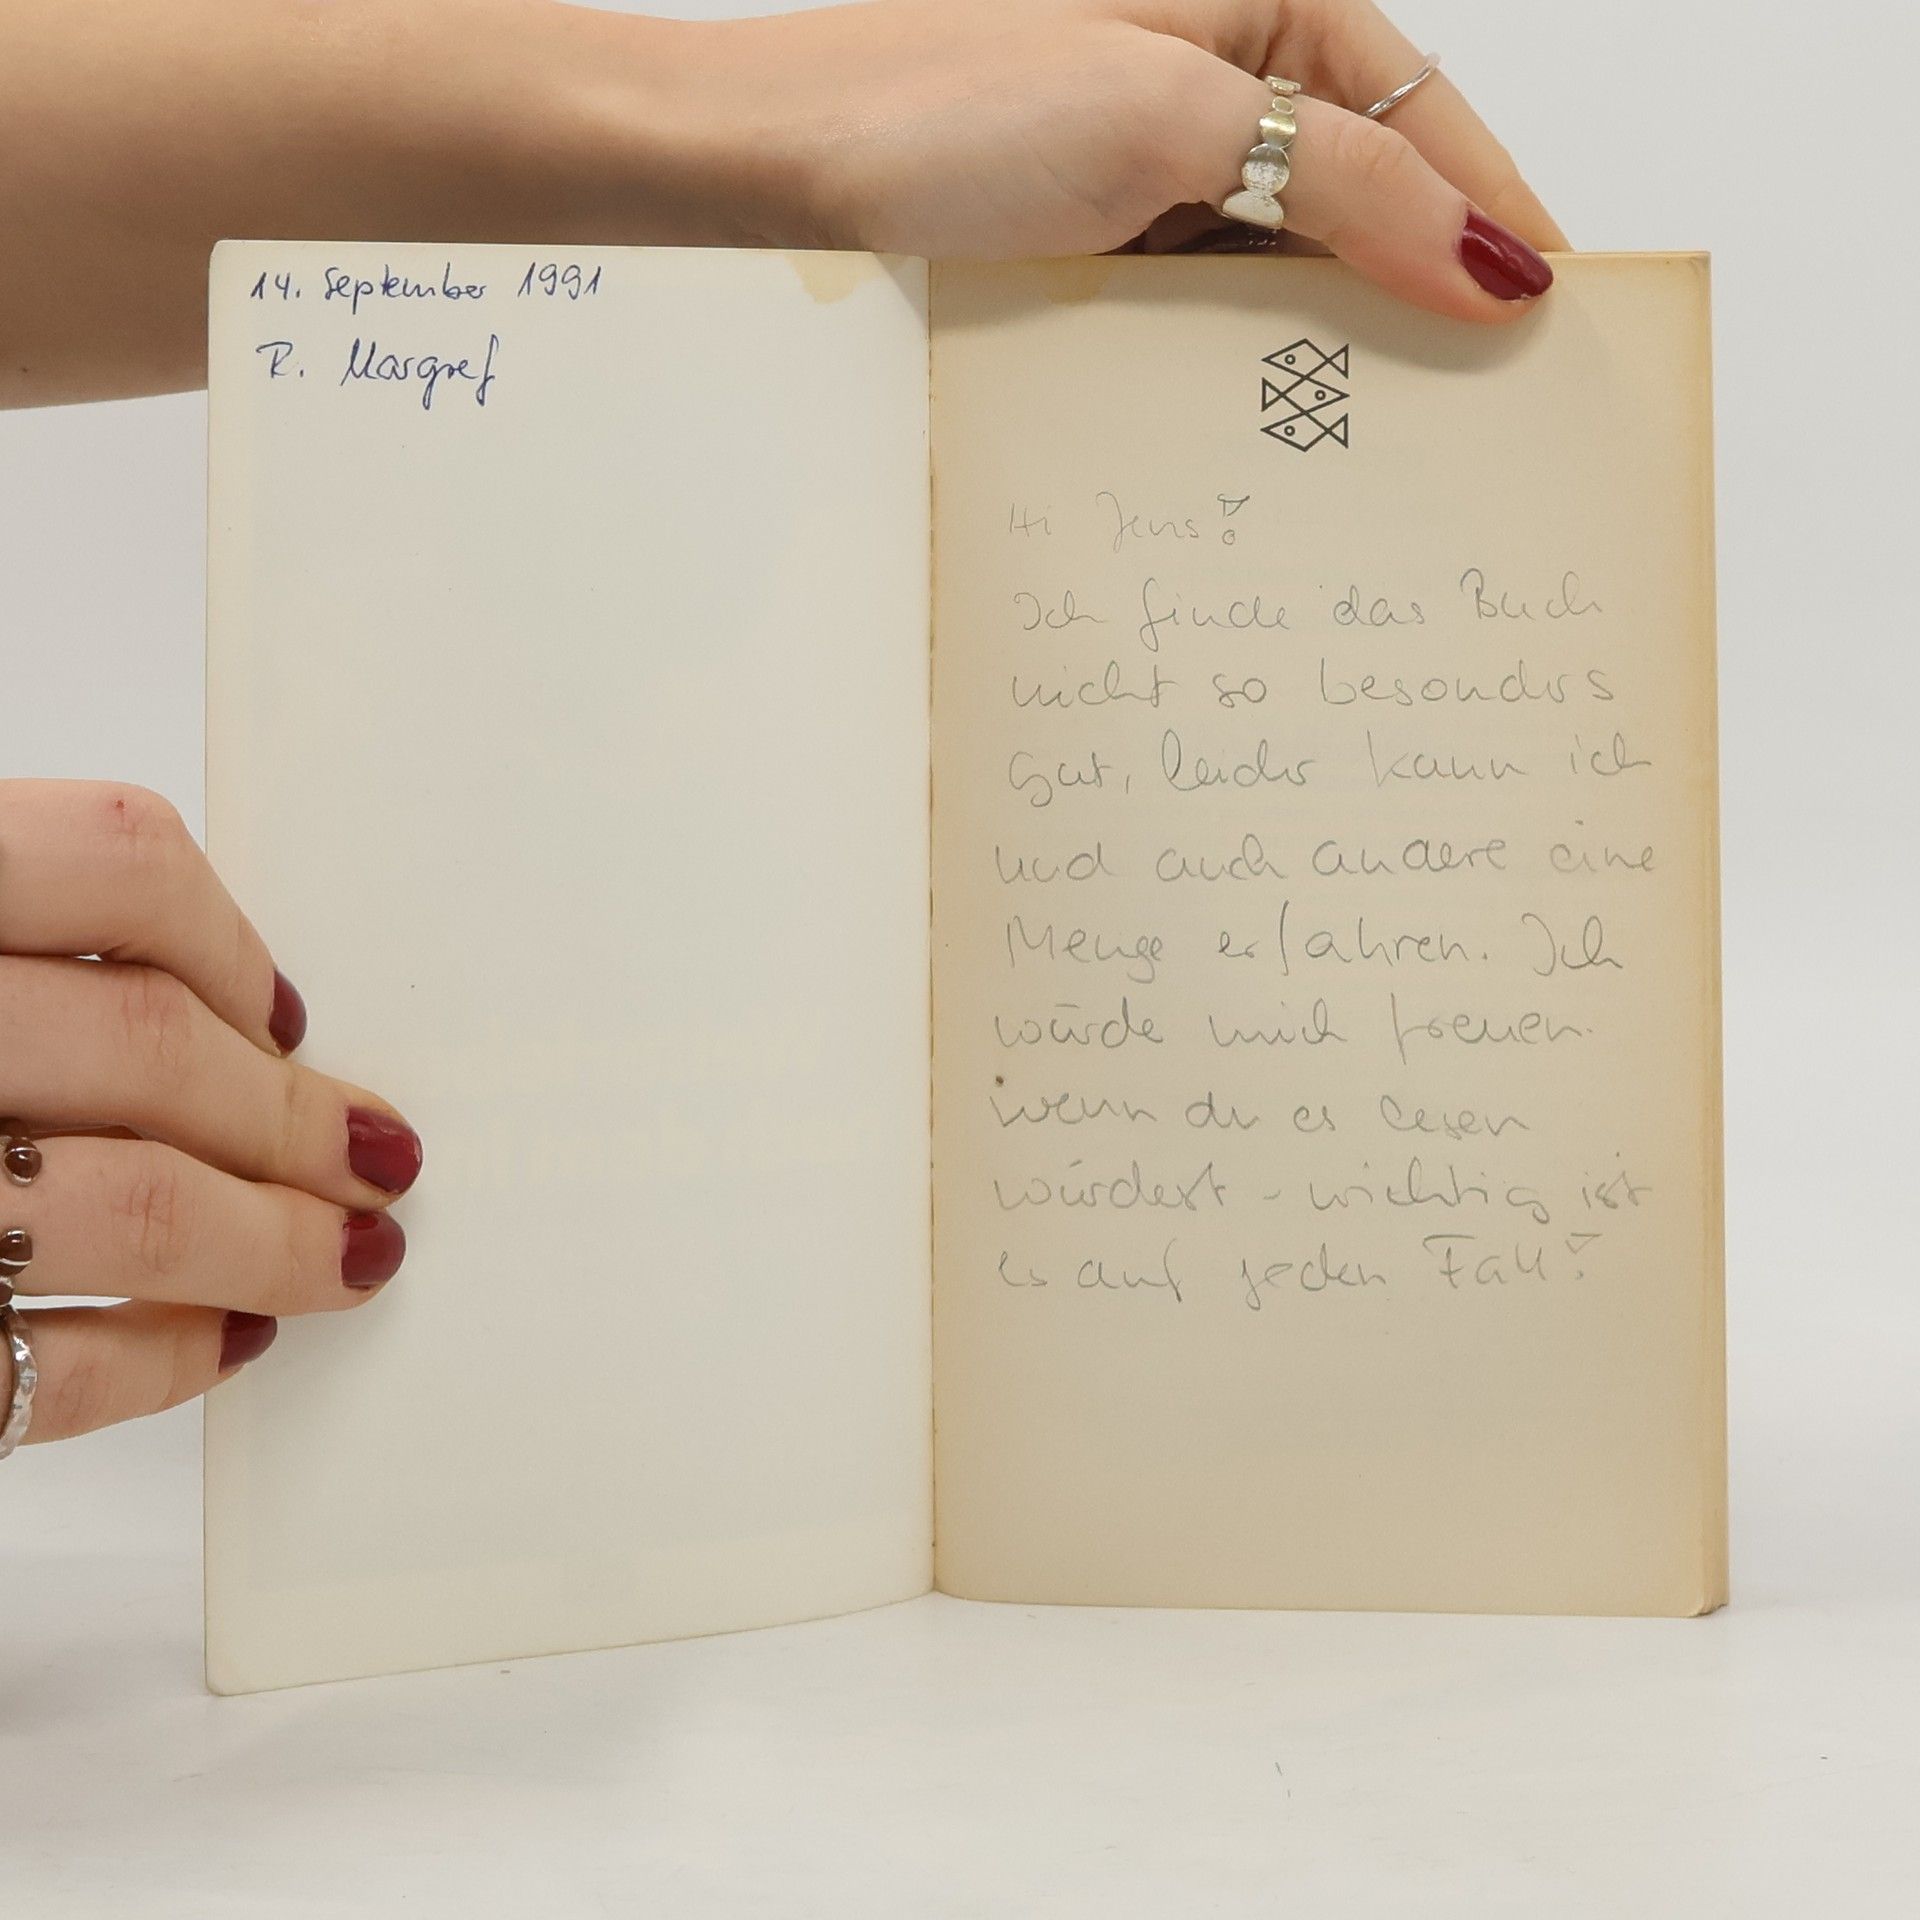 14. September 1991
R. Margref
Hi Jens!
Ich finde das Buch
nicht so besonders
gut, leider kann ich
und auch andere eine
Menge erfahren. Ich
würde mich freuen
wenn du es lesen
würdest - wichtig ist
es auf jeden Fall!